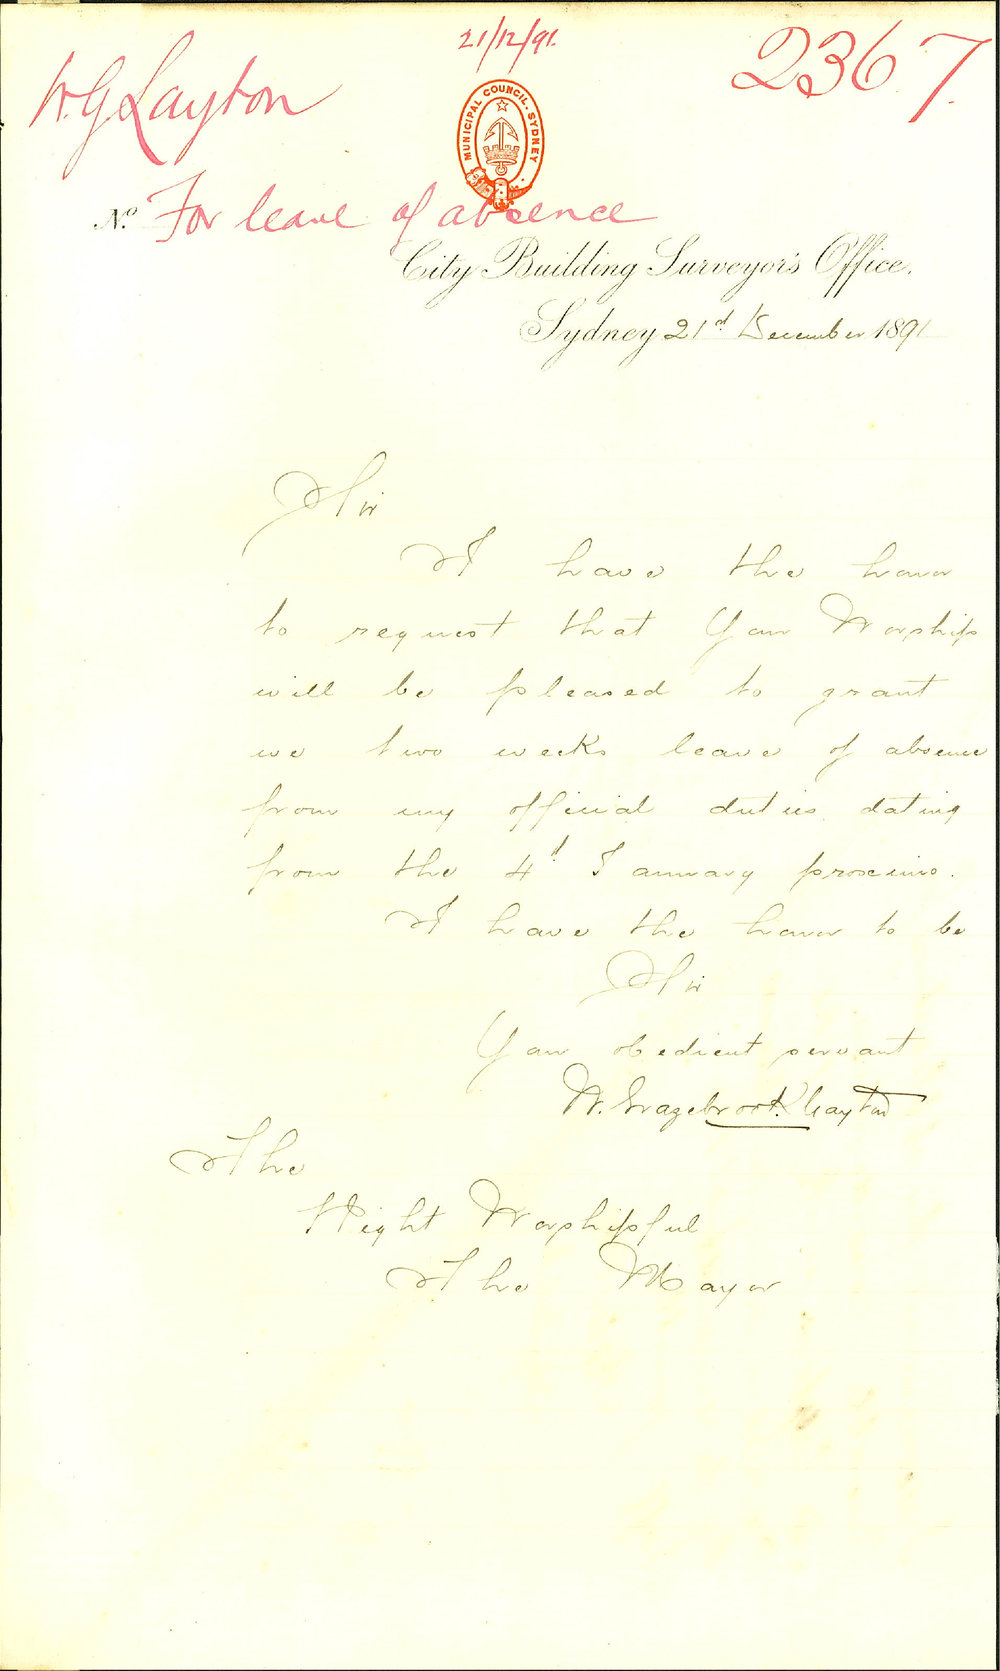 21/12/91.
2367.
W. G. Layton
MUNICIPAL COUNCIL. SYDNEY
No. For leave of absence
City Building Surveyor's Office,
Sydney 21st December 1891
Sir
I have the honor
to request that Your Worship
will be pleased to grant
me two weeks leave of absence
from my official duties dating
from the 4th January proximo.
I have the honor to be
Sir
Your obedient servant
W. Grazebrook Layton
The
Right Worshipful
The Mayor